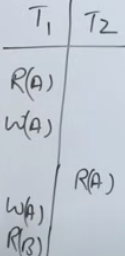 T1 T2
R(A)
W(A)
R(A)
W(A)
R(B)